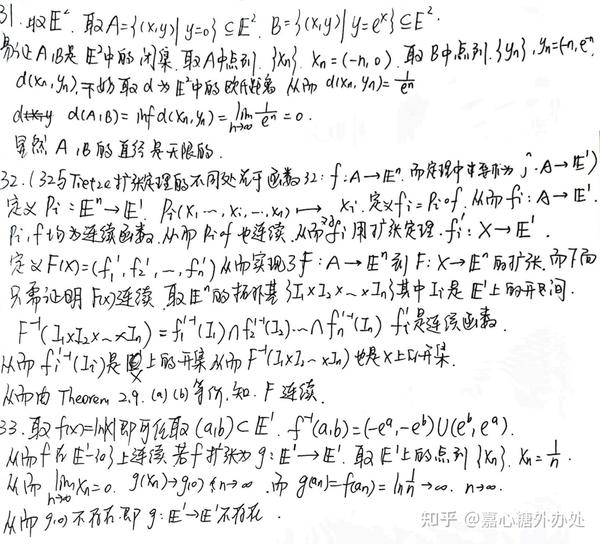 31. 取E². 取A={(x,y)| y=0}⊆E². B={(x,y)|y=eˣ}⊆E².
易证A,B是E²中的闭集. 取A中点列. {xₙ}. xₙ=(-n,0). 取B中点列. {yₙ}, yₙ=(-n,e⁻ⁿ
d(xₙ,yₙ), 不妨取d为E²中的欧氏距离 从而d(xₙ,yₙ)=1/eⁿ
d(A,B)=inf d(xₙ,yₙ)=lim n→∞ 1/eⁿ=0.
显然A,B的直径是无限的.
32. (32与Tietze扩张定理的不同处在于函数32: f:A→Eⁿ. 而定理中 A→E¹)
定义Pᵢ:Eⁿ→E¹. Pᵢ(x₁,…,xᵢ,…,xₙ)↦xᵢ. 定义fᵢ=Pᵢ∘f. 从而fᵢ:A→E¹.
Pᵢ,f均为连续函数. 从而Pᵢ∘f也连续. 从而对fᵢ用扩张定理. fᵢ':X→E¹.
定义F(X)=(f₁',f₂',…,fₙ')从而实现了f:A→Eⁿ到F:X→Eⁿ的扩张. 而下面
只需证明F(x)连续. 取Eⁿ的拓扑基{I₁×I₂×…×Iₙ}其中Iᵢ是E¹上的开区间.
F⁻¹(I₁×I₂×…×Iₙ)=f₁'⁻¹(I₁)∩f₂'⁻¹(I₂)…∩fₙ'⁻¹(Iₙ) fᵢ'是连续函数.
从而fᵢ'⁻¹(Iᵢ)是X上的开集 从而F⁻¹(I₁×I₂…×Iₙ)也是X上的开集.
从而由Theorem 2.9. (a)(b)等价, 知. F连续.
33. 取f(x)=ln|x|即可任取(a,b)⊂E¹. f⁻¹(a,b)=(-eᵃ,-eᵇ)∪(eᵇ,eᵃ).
从而f在E¹-{0}上连续. 若f扩张为g:E¹→E¹. 取E¹上的点列{xₙ}. xₙ=1/n.
从而lim n→∞ xₙ=0. g(xₙ)→g(0) n→∞. 而g(xₙ)=f(xₙ)=ln 1/n→∞. n→∞.
从而g(0)不存在. 即g:E¹→E¹不存在.
知乎 @嘉心糖外办处